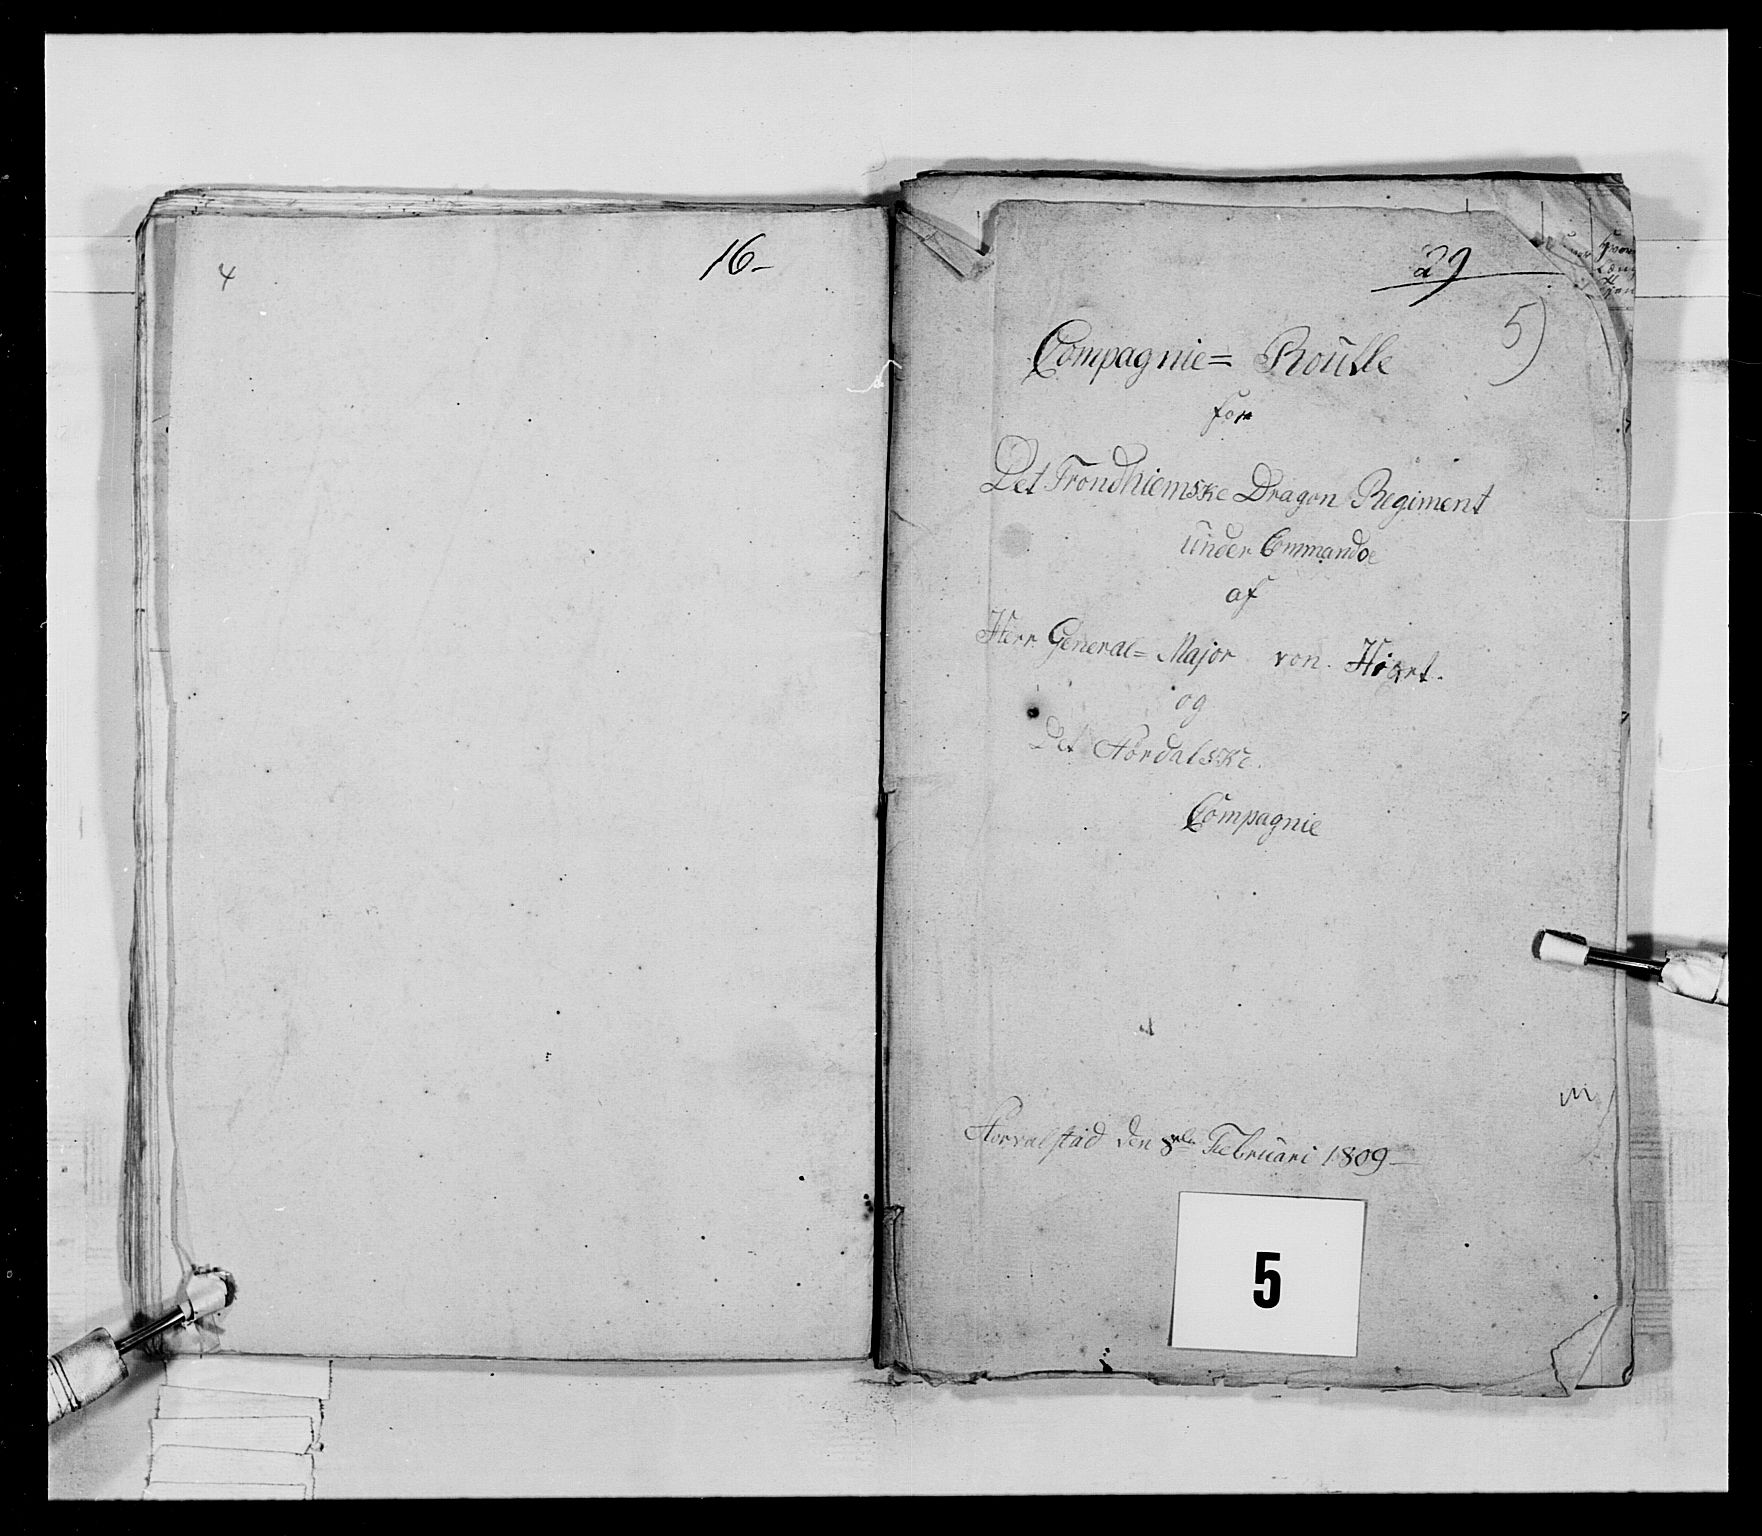 4
16-
29
5)
Compagnie= Roulle
for
Det Trondhiemske Dragon Regiment
under Commando
af
Herr General= Major von Hiort.
og
Det Størdalske
Compagnie
den 8de Februari 1809
5